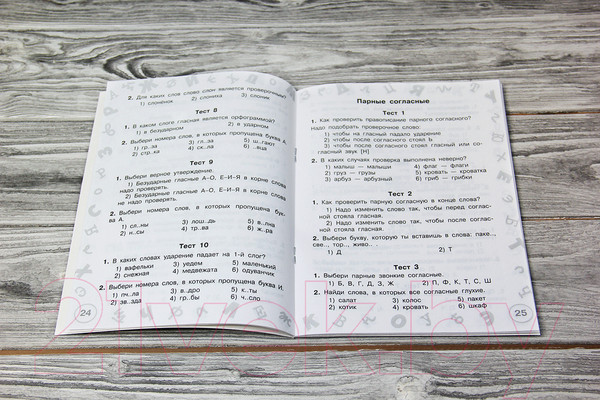 2. Для каких слов слово слон является проверочным?
1) слонёнок 2) слониха 3) слоник
Тест 8
1. В каком слоге гласная является орфограммой?
1) в безударном 2) в ударном
2. Выбери номера слов, в которых пропущена буква А.
1) гр..за 3) гл..за 5) ш..гают
2) стр..ка 4) ск..ла 6) ..вца
Тест 9
1. Выбери верное утверждение.
1) Безударные гласные А-О, Е-И-Я в корне слова
надо проверять.
2) Безударные гласные А-О, Е-И-Я в корне слова
не надо проверять.
2. Выбери номера слов, в которых пропущена бук-
ва А.
1) сл..ны 3) лош..дь 5) в..лна
2) н..сы 4) тр..ва 6) ж..ра
Тест 10
1. В каких словах ударение падает на 1-й слог?
1) вафельки 3) уедем 5) маленький
2) снежная 4) медвежата 6) одуванчик
2. Выбери номера слов, в которых пропущена буква И.
1) пч..ла 3) в..дро 5) к..ты
2) зв..зда 4) гр..бы 6) ч..сло
24
Парные согласные
Тест 1
1. Как проверить правописание парного согласного?
Надо подобрать проверочное слово:
1) чтобы на гласный падало ударение
2) чтобы после согласного стоял Ь
3) чтобы после согласного стоял гласный или со-
гласный звук [Н]
2. В каких случаях проверка выполнена неверно?
1) малыш — малыши 4) флаг — флаги
2) груз — грузы 5) кровать — кроватка
3) арбуз — арбузный 6) гриб — грибки
Тест 2
1. Как проверить парную согласную в конце слова?
1) Надо изменить слово так, чтобы перед соглас-
ной стояла гласная.
2) Надо изменить слово так, чтобы после соглас-
ной стояла гласная.
2. Выбери букву, которую ты вставишь в слова: пахе..,
све.., тор.., живо..
1) Д 2) Т
Тест 3
1. Выбери парные звонкие согласные.
1) Б, В, Г, Д, З, Ж 2) П, Ф, К, Т, С, Ш
2. Найди слова, в которых все согласные глухие.
1) салат 3) колос 5) пакет
2) котик 4) кровать 6) шкаф
25